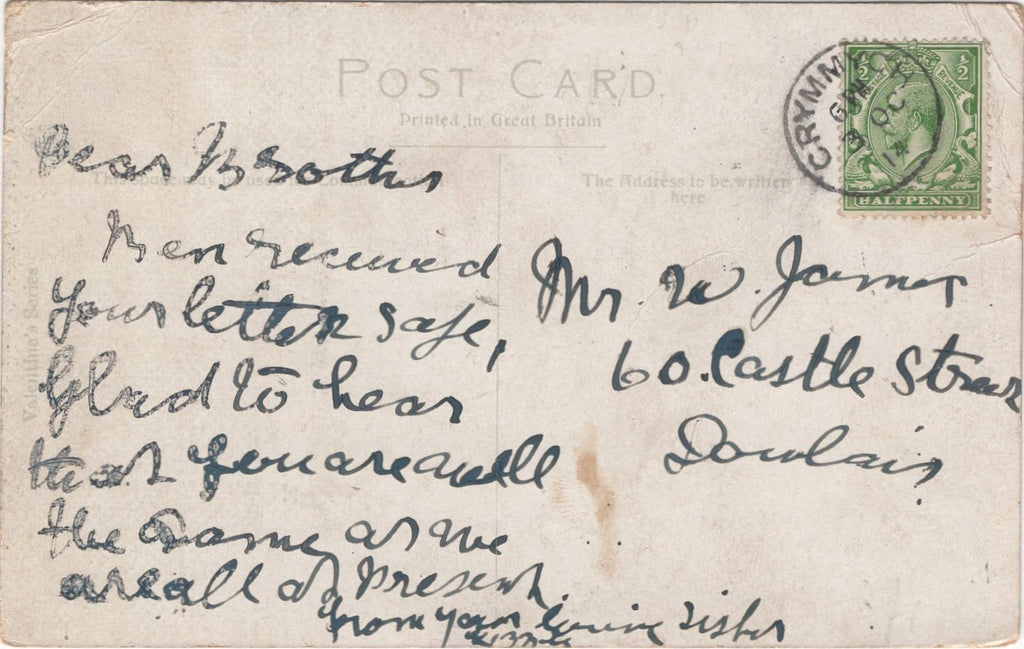 POST CARD.
Printed in Great Britain
The Address to be written
here
Valentine's Series
CRYMMYCH
6 PM
3 OC
14
½ ½
HALFPENNY
Dear Brother
Ben received
your letter safe,
Glad to hear
that you are well
the same as we
are all at present.
from your loving sister
Lizzie
Mr. W. James
60. Castle Street
Dowlais